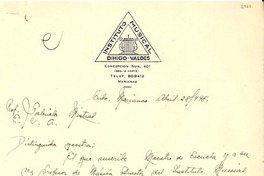 INSTITUTO MUSICAL
DIHIGO-VALDES
CONCEPCION NUM. 401
TELEF. BO9412
MARIANAO
Cuba, Marianao Abril 28/
Gabriela Mistral
Distinguida maestra:
El que suscribe Maestro de Escuela y a su
vez Profesor de Música Director del Instituto Musical